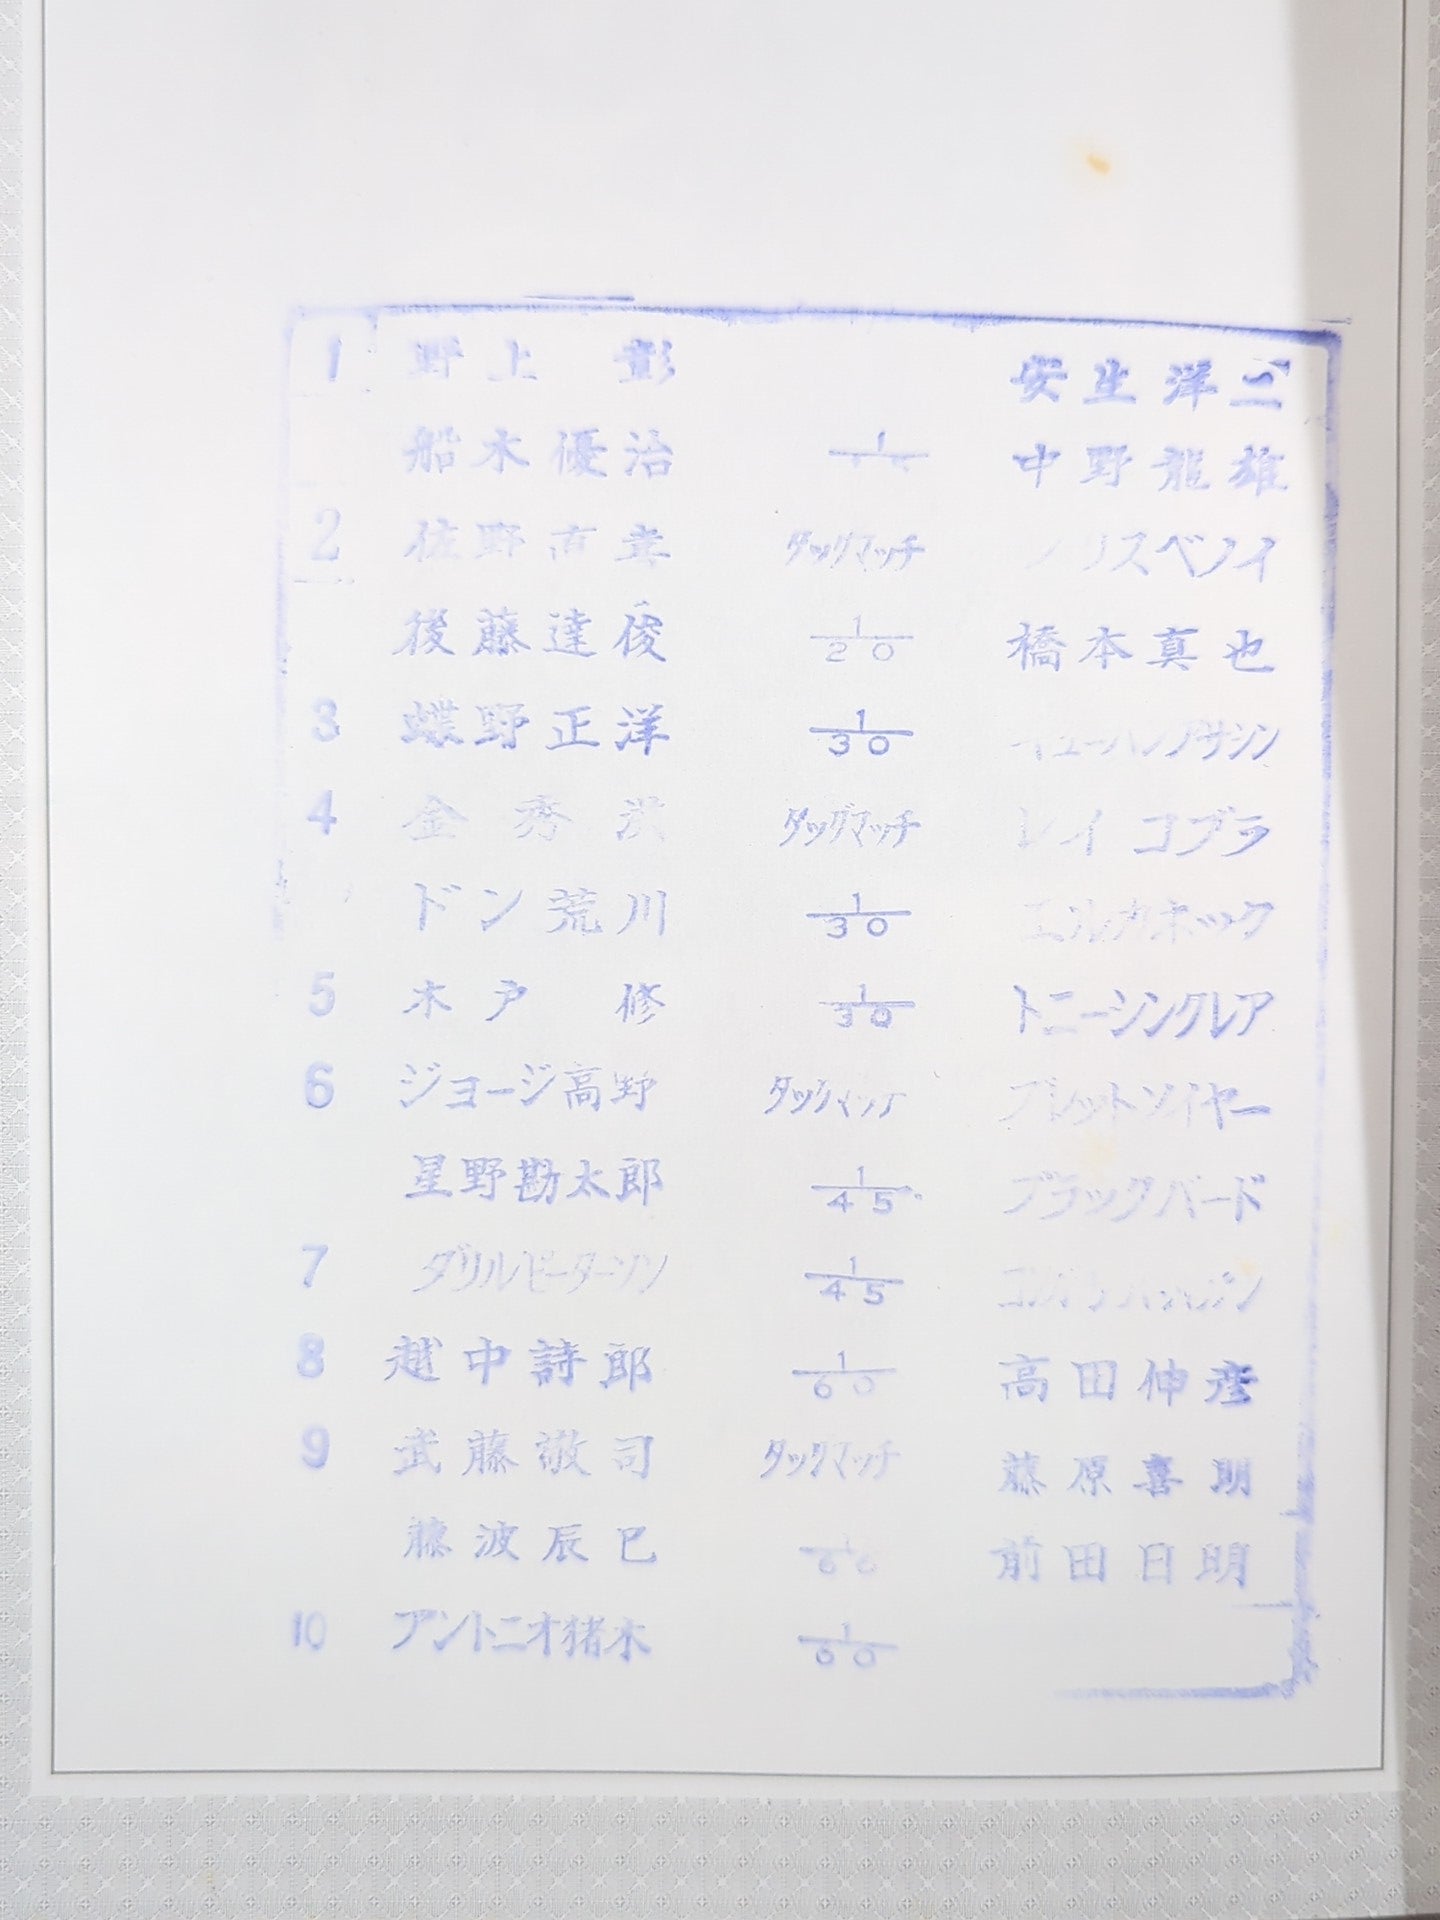 1 野上 彰 安生洋二
船木優治 1 中野龍雄
2 佐野直喜 タッグマッチ クリスベノイ
後藤達俊 1/20 橋本真也
3 蝶野正洋 1/30
4 金秀洪 タッグマッチ レイ コブラ
ドン荒川 1/30
5 木戸 修 1/30 トニーシンクレア
6 ジョージ高野 タッグマッチ ブレットソイヤー
星野勘太郎 1/45 ブラックバード
7 ダリルピーターソン 1/45
8 越中詩郎 1/60 高田伸彦
9 武藤敬司 タッグマッチ 藤原喜明
藤波辰巳 前田日明
10 アントニオ猪木 1/60